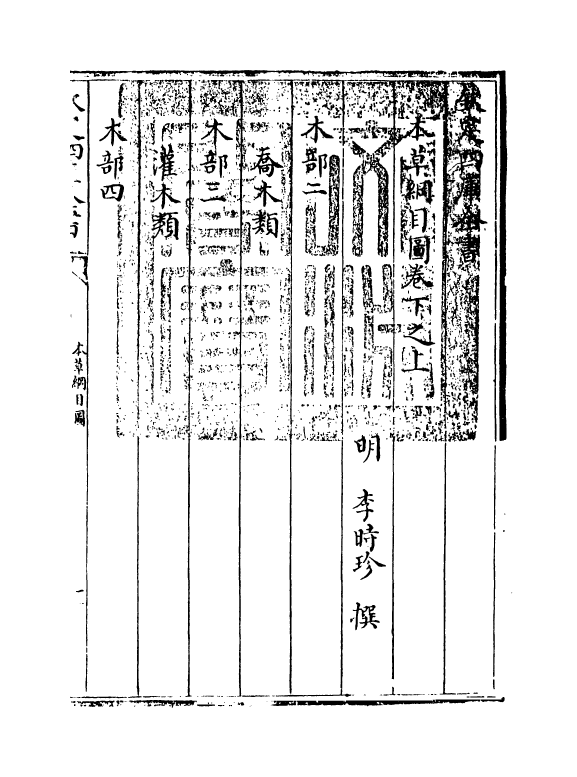 欽定四庫全書
本草綱目圖卷下之上
明 李時珍 撰
木部二
喬木類
木部三
灌木類
木部四
本草綱目圖
一